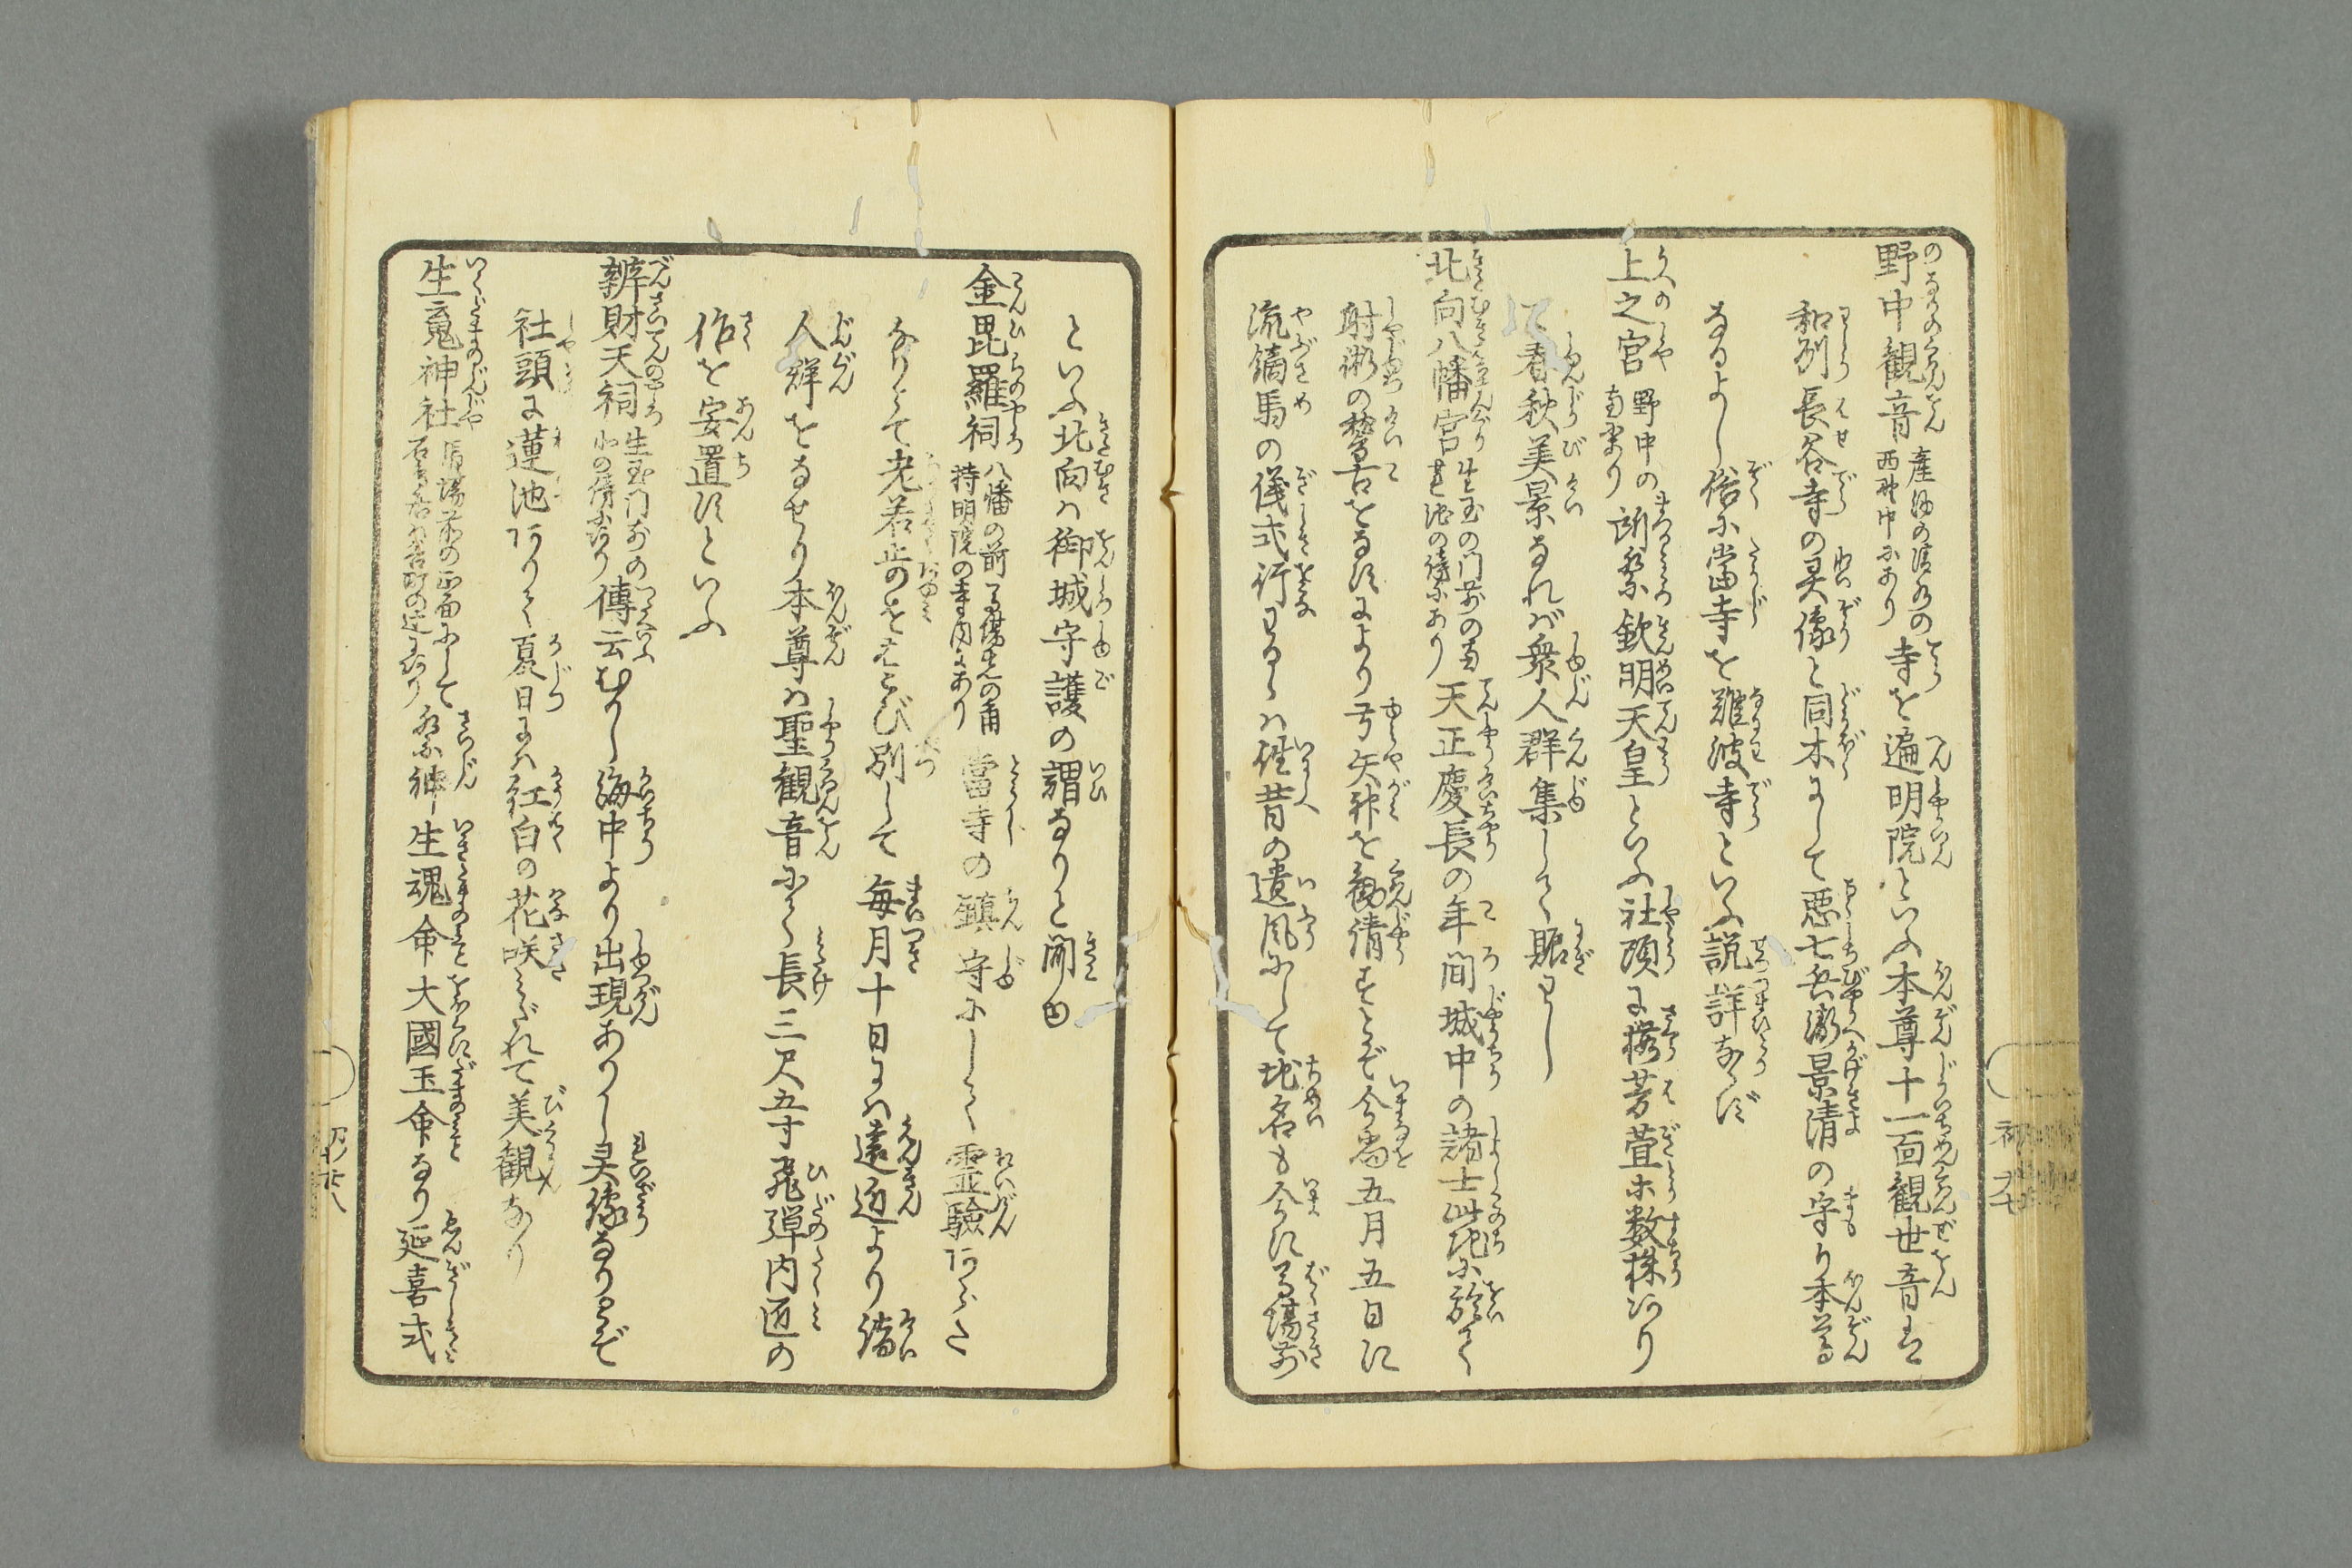 野中観音 産湯の清水の西野中にあり 寺を遍明院といふ本尊十一面観世音は
和州長谷寺の灵像と同木にして悪七兵衛景清の守り本尊
なるよし俗に當寺を難波寺といふ説詳ならず
上之宮 野中の南にあり 所祭欽明天皇といふ社頭に櫻芳萱ホ数株ありて
春秋美景なれば衆人群集して賑わし
北向八幡宮 生玉の門前の南蓮池の傍にあり 天正慶長の年間城中の諸士此地に於て
射術の稽古をなすにより弓矢神を勧請すとぞ今尚五月五日に
流鏑馬の儀式行わるゝは往昔の遺風にして地名も今に馬場前
といふ北向は御城守護の謂なりと聞ゆ
金毘羅祠 八幡の前馬場先の角持明院の寺内にあり 當寺の鎮守にして霊験あらた
なりとて老若歩のをはこび別して毎月十日には遠近より諸
人群をなせり本尊は聖観音にして長三尺五寸飛弾内匠の
作を安置すといふ
辨財天祠 生玉门前の北の傍にあり 傳云むかし海中より出現ありし灵像なりとぞ
社頭に蓮池ありて夏日には紅白の花咲みだれて美観なり
生寬神社 馬場前の西面にして 祭神生魂命大國玉命なり延喜式